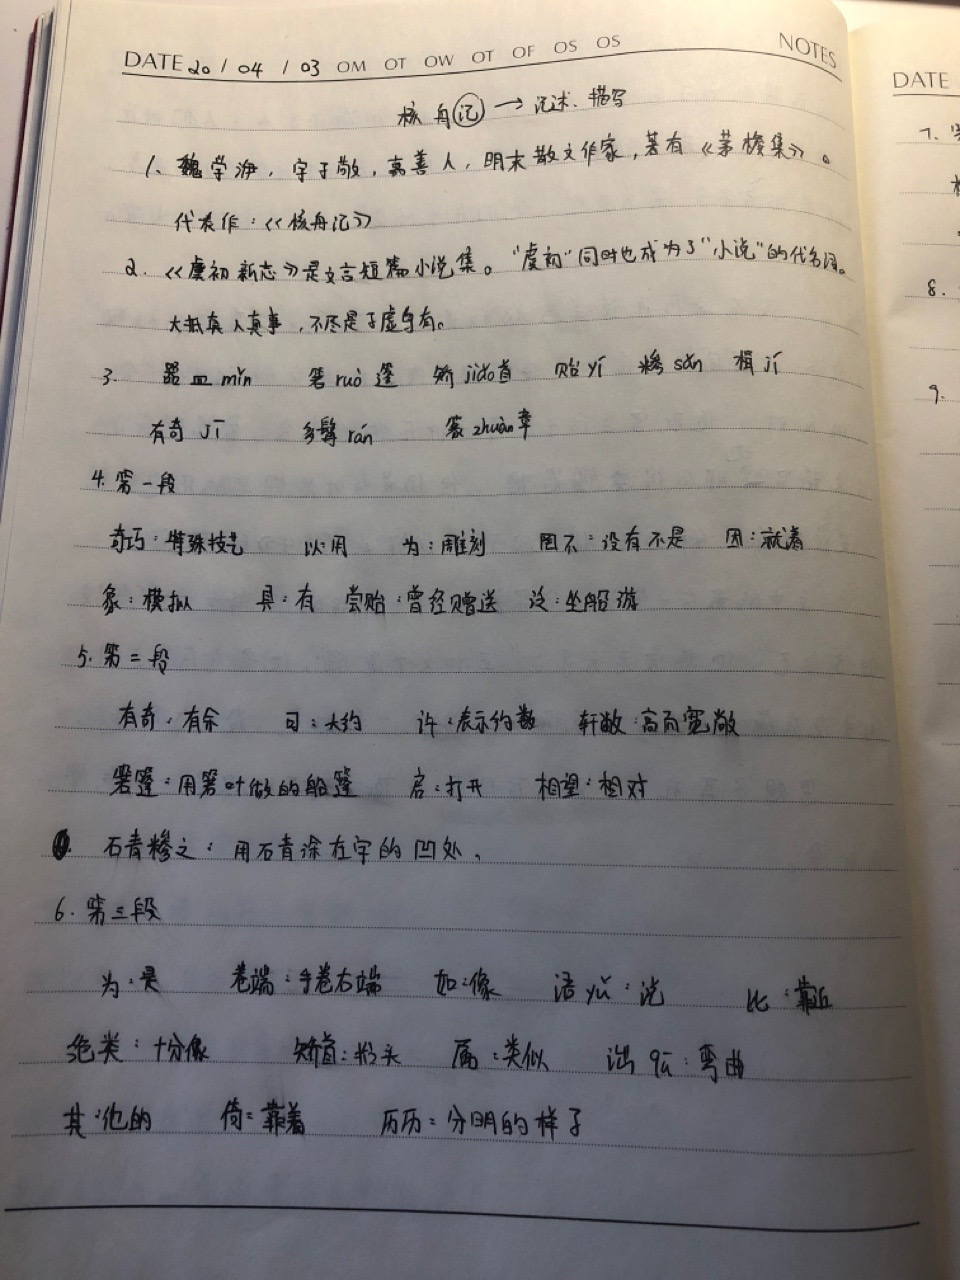 DATE 20 / 04 / 03 OM OT OW OT OF OS OS NOTES
核舟记 → 记述、描写
1、魏学洢，字子敬，嘉善人，明末散文作家，著有《茅檐集》。
代表作：《核舟记》
2. 《虞初新志》是文言短篇小说集。“虞初”同时也成为了“小说”的代名词。
大抵真人真事，不尽是子虚乌有。
3. 器皿 mǐn 箬 ruò 篷 矫 jiǎo 首 贻 yí 糁 sǎn 楫 jí
有奇 jī 多髯 rán 篆 zhuàn 章
4. 第一段
奇巧：特殊技艺 以：用 为：雕刻 罔不：没有不是 因：就着
象：模拟 具：有 尝贻：曾经赠送 泛：坐船游
5. 第二段
有奇：有余 可：大约 许：表示约数 轩敞：高而宽敞
箬篷：用箬叶做的船篷 启：打开 相望：相对
石青糁之：用石青涂在字的凹处。
6. 第三段
为：是 卷端：手卷右端 如：像 语 yǔ：说 比：靠近
绝类：十分像 矫首：抬头 属：类似 诎 qū：弯曲
其：他的 倚：靠着 历历：分明的样子
DATE
7.
8.
9.